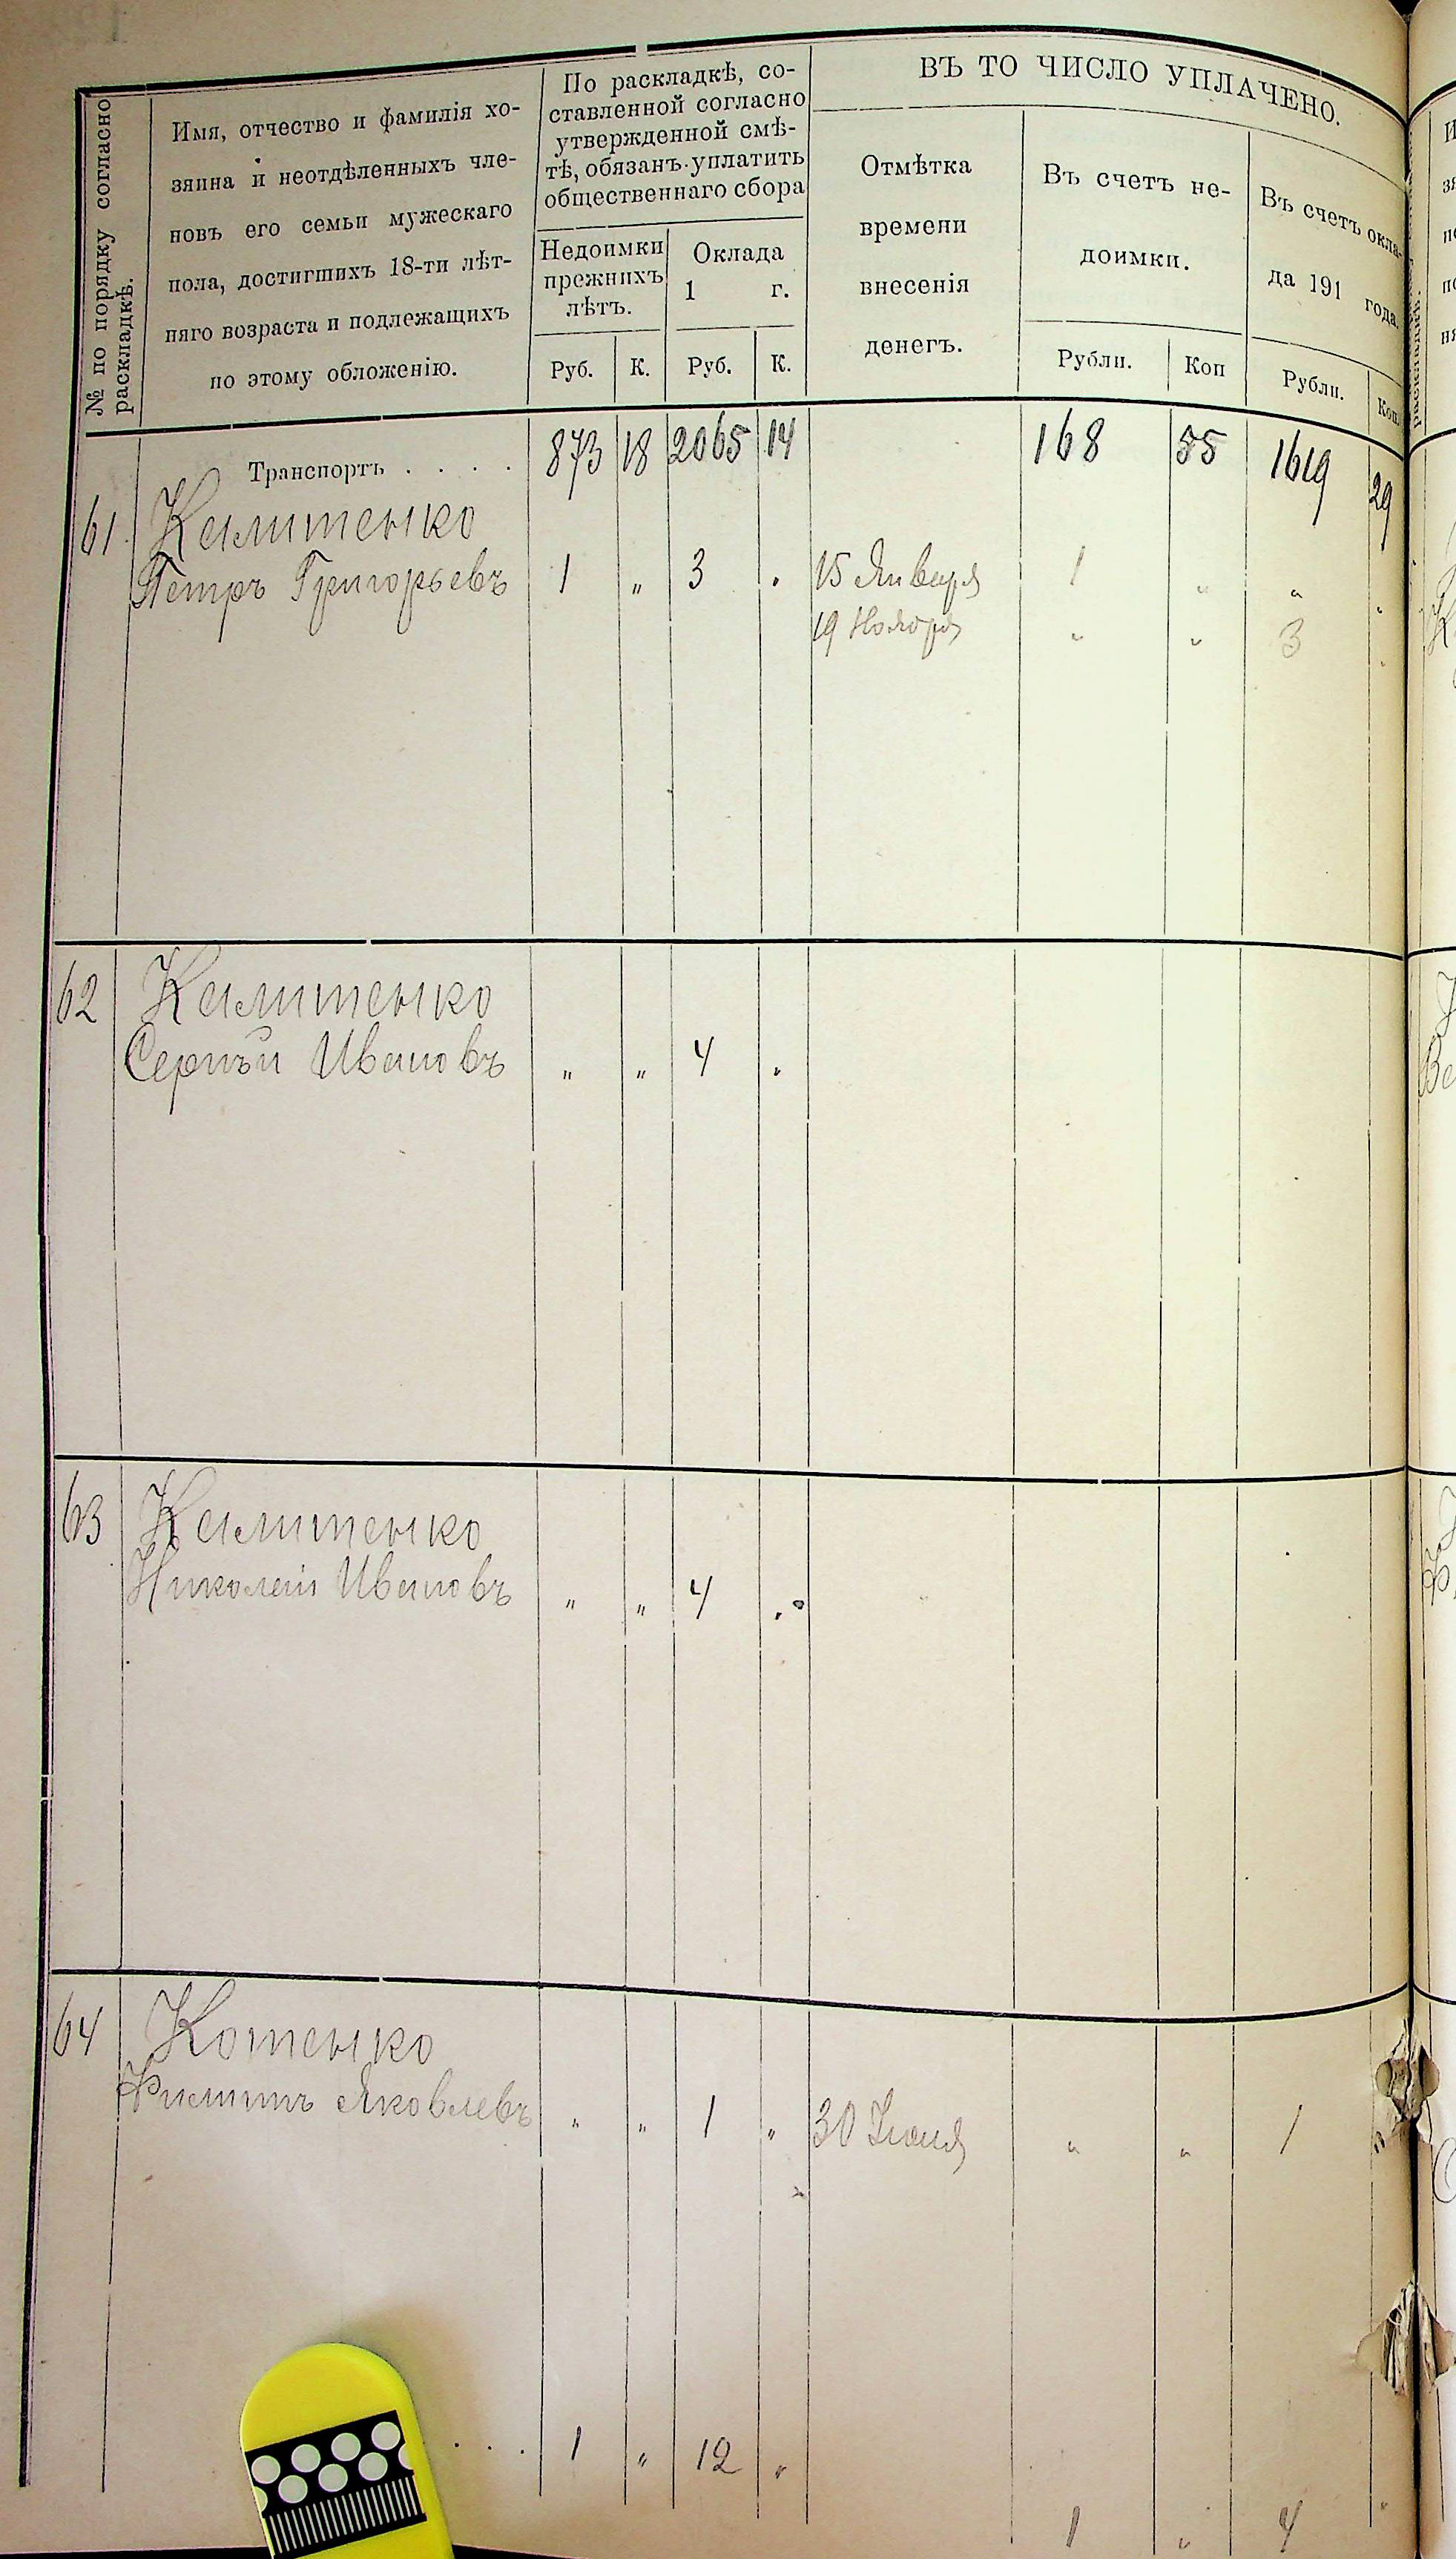 № по порядку согласно
раскладкѣ.
Имя, отчество и фамилія хо-
зяина и неотдѣленныхъ чле-
новъ его семьи мужескаго
пола, достигшихъ 18-ти лѣт-
няго возраста и подлежащихъ
по этому обложенію.
По раскладкѣ, со-
ставленной согласно
утвержденной смѣ-
тѣ, обязанъ уплатить
общественнаго сбора
Недоимки
прежнихъ
лѣтъ.
Оклада
1 г.
Руб. К. Руб. К.
ВЪ ТО ЧИСЛО УПЛАЧЕНО.
Отмѣтка
времени
внесенія
денегъ.
Въ счетъ не-
доимки.
Рубли. Коп
Въ счетъ окла-
да 191 года.
Рубли. Коп.
Транспортъ . . . . 873 18 2065 14 168 55 1619 29
61 Калитенко
Петръ Григорьевъ 1 „ 3 „ 15 Января 1 „ „ „
19 Ноября „ „ 3 „
62 Калитенко
Сергѣй Ивановъ „ „ 4 „
63 Калитенко
Николай Ивановъ „ „ 4 „
64 Котенко
Филиппъ Яковлевъ „ „ 1 „ 30 Іюня „ „ 1 „
. . . 1 „ 12 „
1 „ 4 „